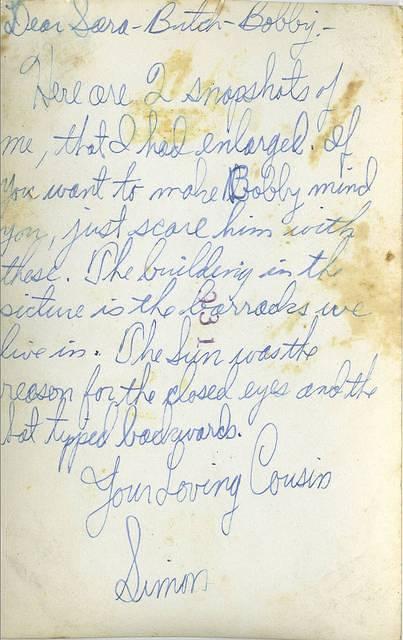 Dear Sara-Butch-Bobby.-
Here are 2 snapshots of
me, that I had enlarged. If
You want to make Bobby mind
you, just scare him with
these. The building in the
picture is the barracks we
live in. The Sun was the
reason for the closed eyes and the
hat tipped backwards.
Your Loving Cousin
Simon
931